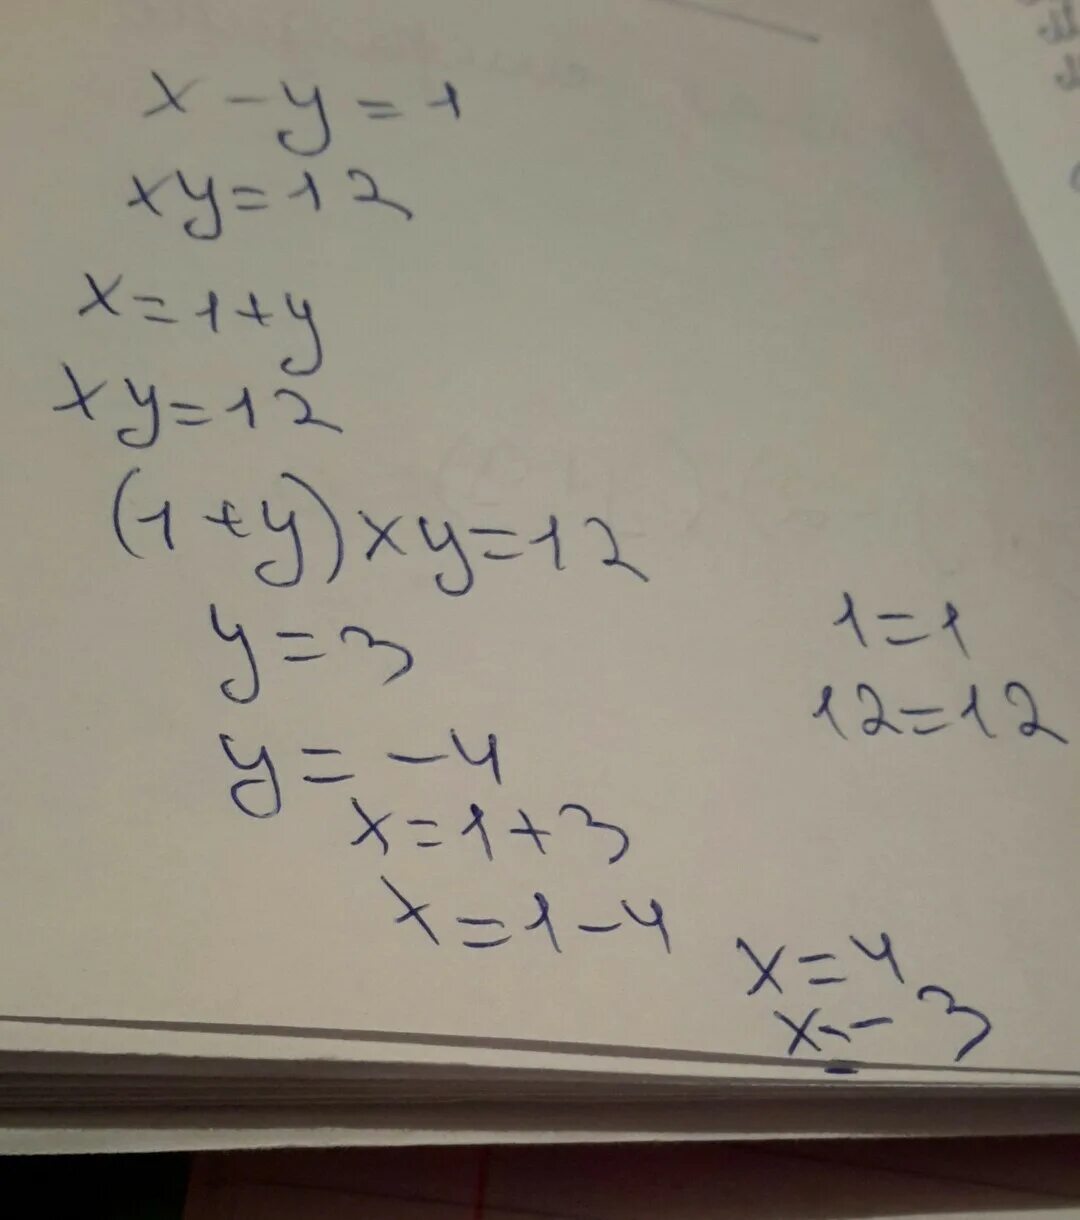 x - y = 1
xy = 12
x = 1 + y
xy = 12
(1 + y) x y = 12
y = 3
y = -4
x = 1 + 3
x = 1 - 4
1 = 1
12 = 12
x = 4
x = -3